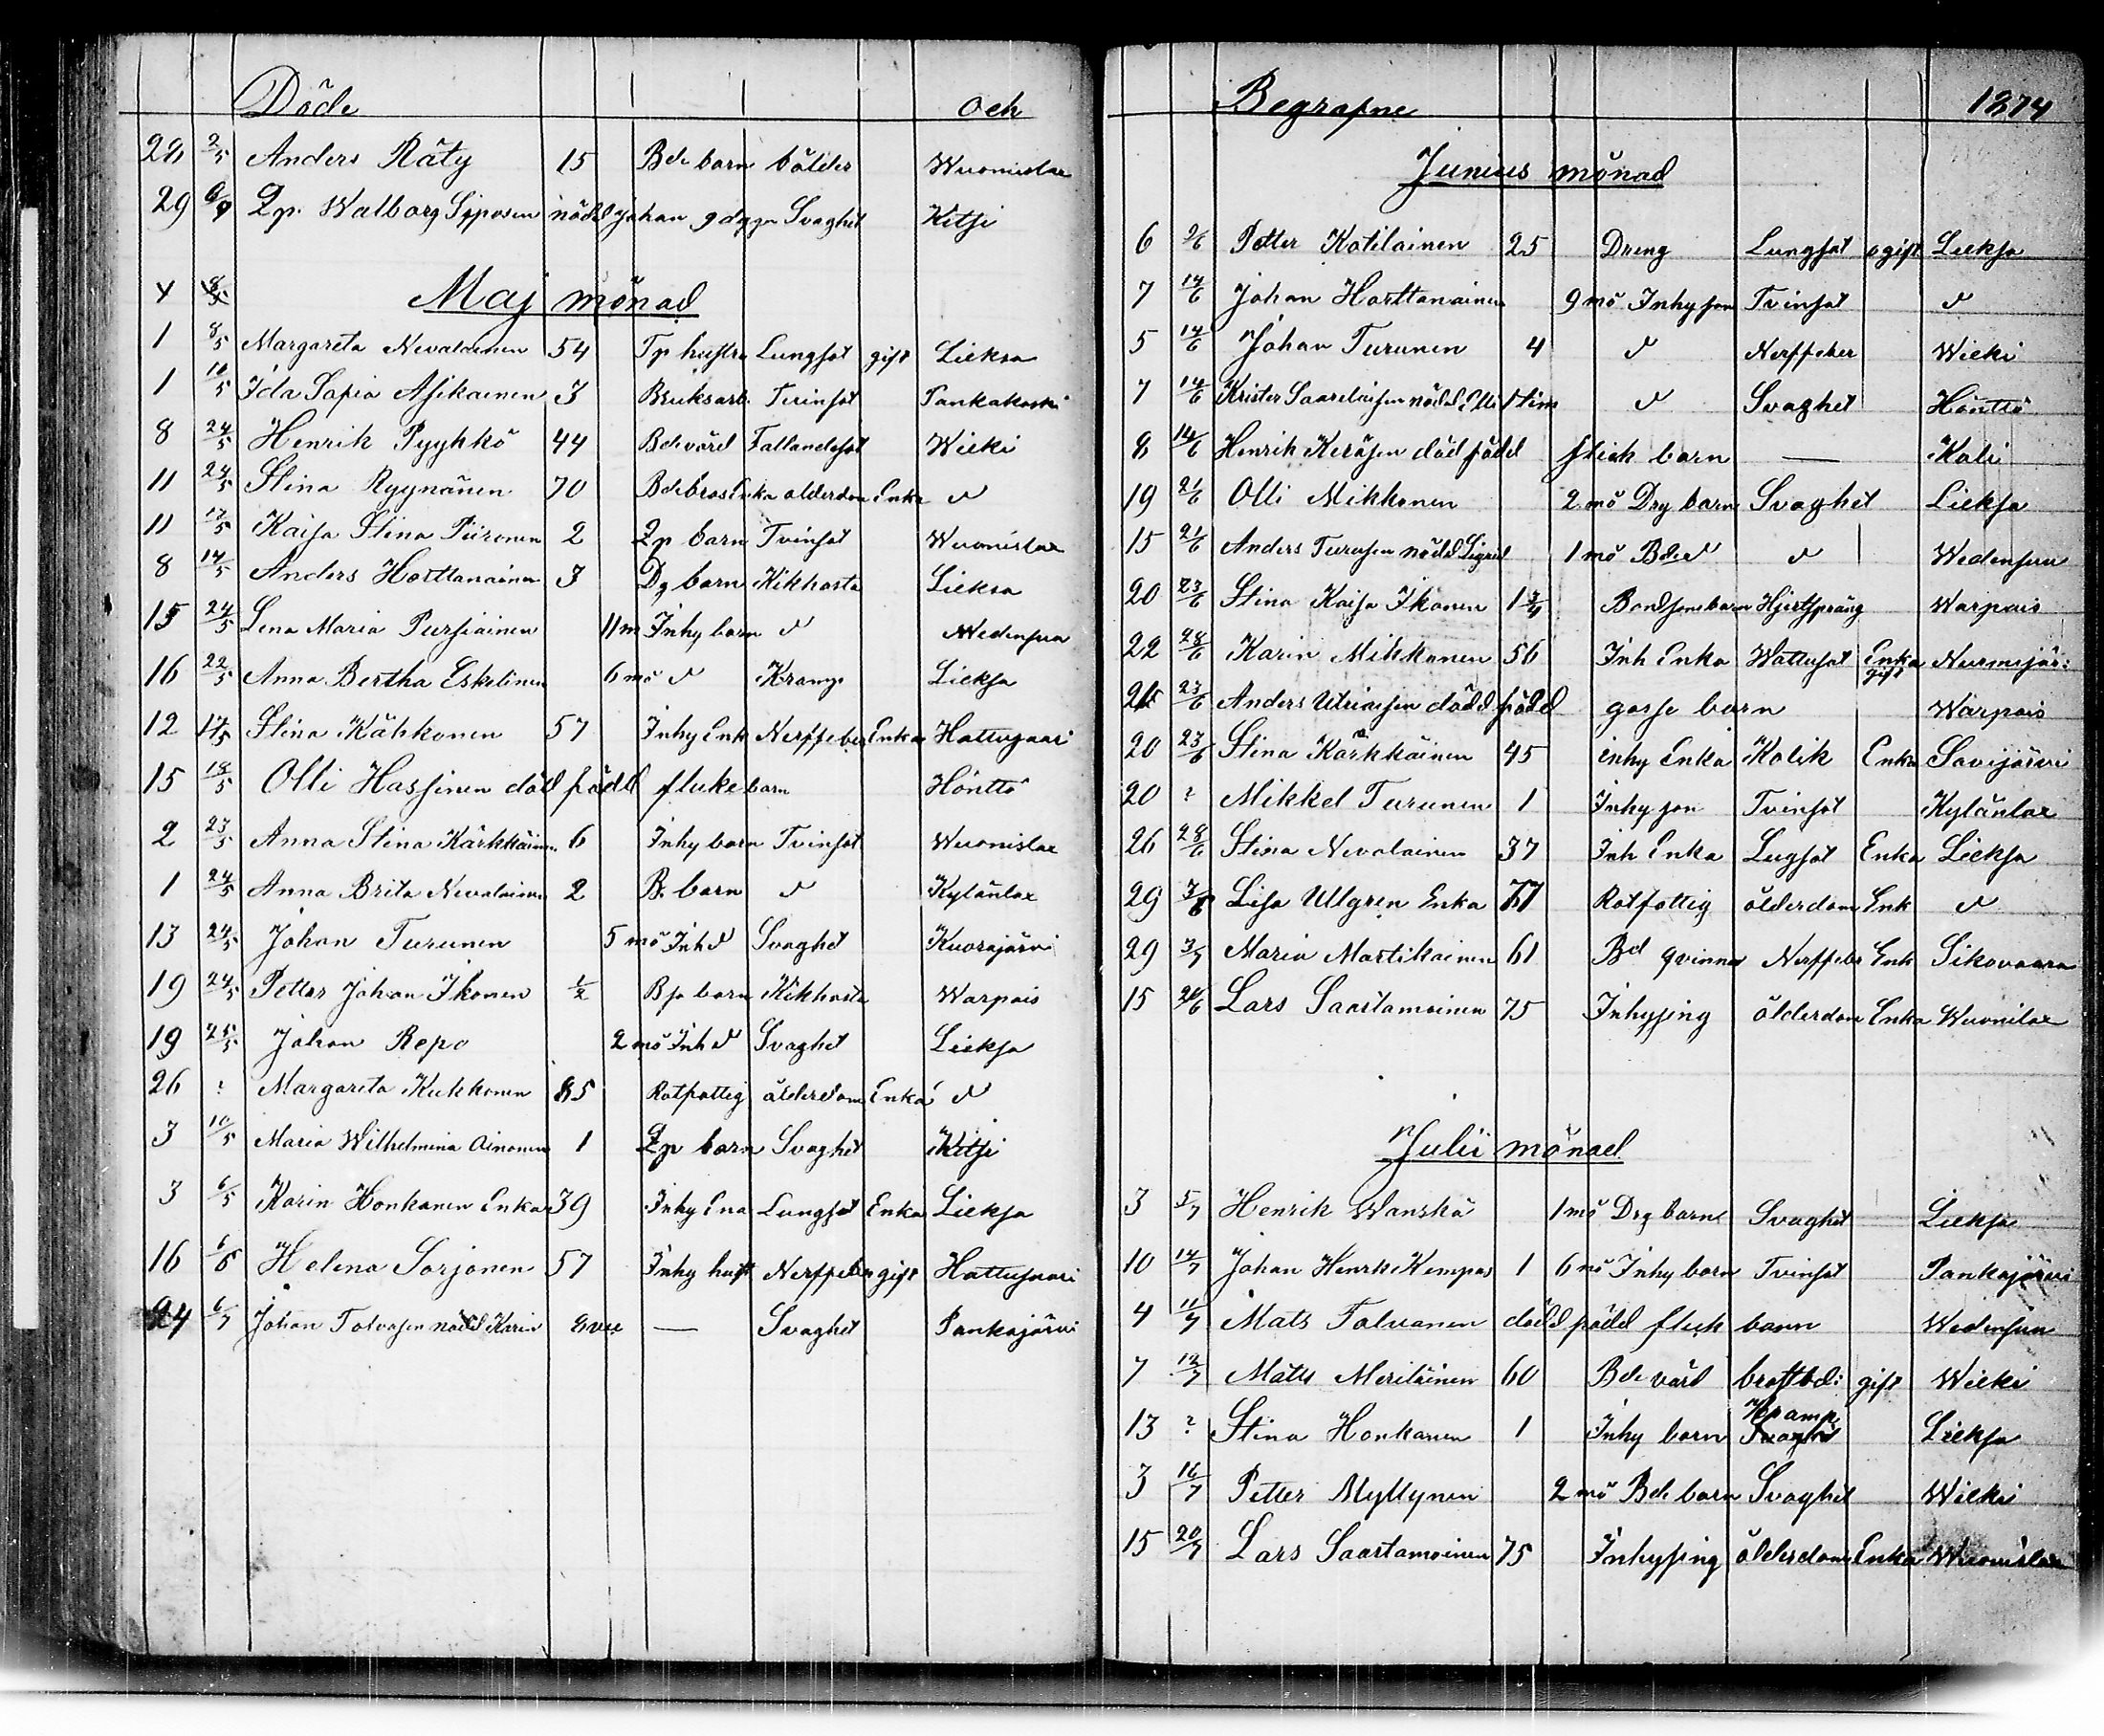 Döde och
28 2/5 Anders Räty 15 Bde barn bölder Wuonislax
29 6/9 Lp. Walborg Sipposen nödd Johan 9 dygn Svaghet Kitsi
Maj mönad
1 8/5 Margareta Nevalainen 54 Tp hustru Lungsot gift Lieksa
1 10/5 Ida Sofia Asikainen 3 Bruksarb. Tvinsot Pankakoski
8 24/5 Henrik Pyykkö 44 Bdevärd Fallandesot Wieki
11 24/5 Stina Ryynänen 70 Enka ålderdom Enka d
11 17/5 Kaisa Stina Piironen 2 Lp barn Tvinsot Wuonislax
8 14/5 Anders Horttanainen 3 Dg barn Kikhosta Lieksa
15 24/5 Lena Maria Pursiainen 11 m Inhy barn d Wedensuu
16 22/5 Anna Bertha Eskelinen 6 mö d Kramp Lieksa
12 17/5 Stina Kähkonen 57 Inhy Enk Nerffeber Enka Hattusaari
15 18/5 Olli Hassinen död född flicke barn Hönttö
2 23/5 Anna Stina Kärkkäinen 6 Inhy barn Tvinsot Wuonislax
1 24/5 Anna Brita Nevalainen 2 B. barn d Kylänlax
13 24/5 Johan Turunen 5 mö Inh d Svaghet Kuorajärvi
19 24/5 Petter Johan Ikonen 1/2 Bso barn Kikhosta Warpais
19 25/5 Johan Repo 2 mö Inh d Svaghet Lieksa
26 ? Margareta Kukkonen 85 Rotfattig ålderdom Enka d
3 10/5 Maria Wilhelmina Ainonen 1 Lp barn Svaghet Kitsi
3 6/5 Karin Honkanen Enka 39 Inhy Ena Lungsot Enka Lieksa
16 6/6 Helena Sorjonen 57 Inhy hust Nerffeber gift Hattusaari
24 6/7 Johan Tolvasen nödd Karin — Svaghet Pankajärvi
Begrafne 1874
Junius mönad
6 9/6 Petter Kotilainen 25 Dreng Lungsot ogift Lieksa
7 14/6 Johan Horttanainen 9 mö Inhy son Tvinsot d
5 14/6 Johan Turunen 4 d Nerffeber Wieki
7 14/6 Krister Saarelaisen nödd Olli 1 tim d Svaghet Hönttö
8 14/6 Henrik Keräsen död född flick barn — Koli
19 21/6 Olli Mikkonen 2 mö Drg barn Svaghet Lieksa
15 21/6 Anders Turusen nödd Sigrid 1 mö Bde d d Wedensuu
20 23/6 Stina Kaisa Ikonen 1 3/4 Bondsonebarn Hjertspräng Warpais
22 28/6 Karin Mikkonen 56 Inh Enka Wattusot Enka gift Nurmijär:
26 23/6 Anders Utriaisen dödd född gosse barn Warpais
20 23/6 Stina Karkkäinen 45 inhy Enka Kolik Enka Savijärvi
20 ? Mikkel Turunen 1 Inhy son Tvinsot Kylänlax
26 28/6 Stina Nevalainen 37 Inh Enka Lugsot Enka Lieksa
29 7/6 Lisa Ullgren Enka 77 Rotfattig ålderdom Enk d
29 3/7 Maria Martikainen 61 Bd qvinna Nerffebr Enk Sikovaara
15 Lars Saastamoinen 75 Inhysing ålderdom Enka Wuonilax
Julii mönad
3 5/7 Henrik Wanska 1 mö Drg barn Svaghet Lieksa
10 14/7 Johan Henrk Kempas 1 6 mö Inhy barn Tvinsot Pankajärvi
4 11/7 Mats Talvanen dödd född flick barn Wedensuu
7 12/7 Matts Meriläinen 60 Bde värd gift Wieki
13 ? Stina Honkanen 1 Inhy barn Kramp Svaghet Lieksa
3 16/7 Petter Myllynen 2 mö Bde barn Svaghet Wieki
15 20/7 Lars Saastamoinen 75 Inhysing ålderdom Enka Wuonislax